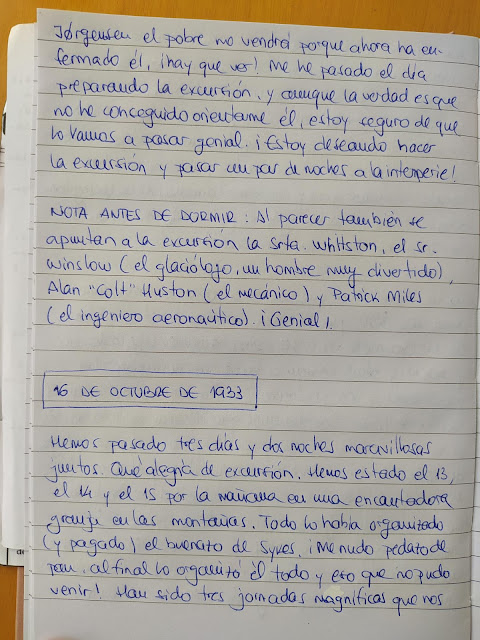 Jørgensen el pobre no vendrá porque ahora ha en-
fermado él, ¡hay que ver! Me he pasado el día
preparando la excursión, y aunque la verdad es que
no he conseguido orientarme él, estoy seguro de que
lo vamos a pasar genial. ¡Estoy deseando hacer
la excursión y pasar un par de noches a la intemperie!
NOTA ANTES DE DORMIR: Al parecer también se
apuntan a la excursión la Srta. Whitston, el sr.
Winslow (el glaciólogo, un hombre muy divertido),
Alan "Colt" Huston (el mecánico) y Patrick Miles
(el ingeniero aeronaútico). ¡Genial!
16 DE OCTUBRE DE 1933
Hemos pasado tres días y dos noches maravillosas
juntos. Qué alegría de excursión. Hemos estado el 13,
el 14 y el 15 por la mañana en una encantadora
granja en las montañas. Todo lo había organizado
(y pagado) el buenato de Syves. ¡Menudo pedato de
pan, al final lo organizó él todo y eso que no pudo
venir! Han sido tres jornadas magníficas que nos